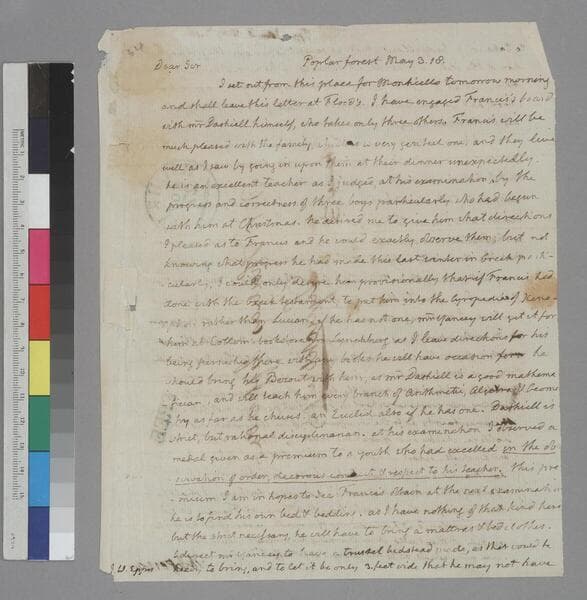 Dear Sir
Poplar forest May 3. 18.
I set out from this place for Monticello tomorrow morning
and shall leave this letter at Flood's. I have engaged Francis's board
with mr Dashiell himself, who takes only three others. Francis will be
much pleased with the family, which is a very genteel one, and they live
well as I saw by going in upon them at their dinner unexpectedly.
he is an excellent teacher as I judged, at his examination, by the
progress and correctness of three boys particularly who had begun
with him at Christmas. he desired me to give him what directions
I pleased as to Francis and he would exactly observe them; but not
knowing what progress he had made this last winter in Greek parti-
cularly, I could only desire him provisionally that if Francis had
done with the Greek testament, to put him into the Cyropaedia of Xeno-
phon rather than Lucian. if he has not one, mr Yancey will get it for
him at Cottom's bookstore in Lynchburg as I leave directions for his
being furnished there with any books he will have occasion for. he
should bring his Bezout with him, as mr Dashiell is a good mathema
tician, and will teach him every branch of Arithmetic, Algebra & Geome
try as far as he chuses. an Euclid also if he has one. Dashiell is
strict, but rational disciplinarian. at his examination I observed a
medal given as a premium to a youth who had excelled in the ob-
servation of order, decorous conduct & respect to his teacher. this pre
-mium I am in hopes to see Francis obtain at the next examination
he is to find his own bed & bedding. as I have nothing of that kind here
but the strict necessary, he will have to bring a mattras & bed clothes.
I direct mr Yancey to have a trussel bedstead made, as that would be
ready to bring, and to let it be only 3. feet wide that he may not have
J. W. Eppes